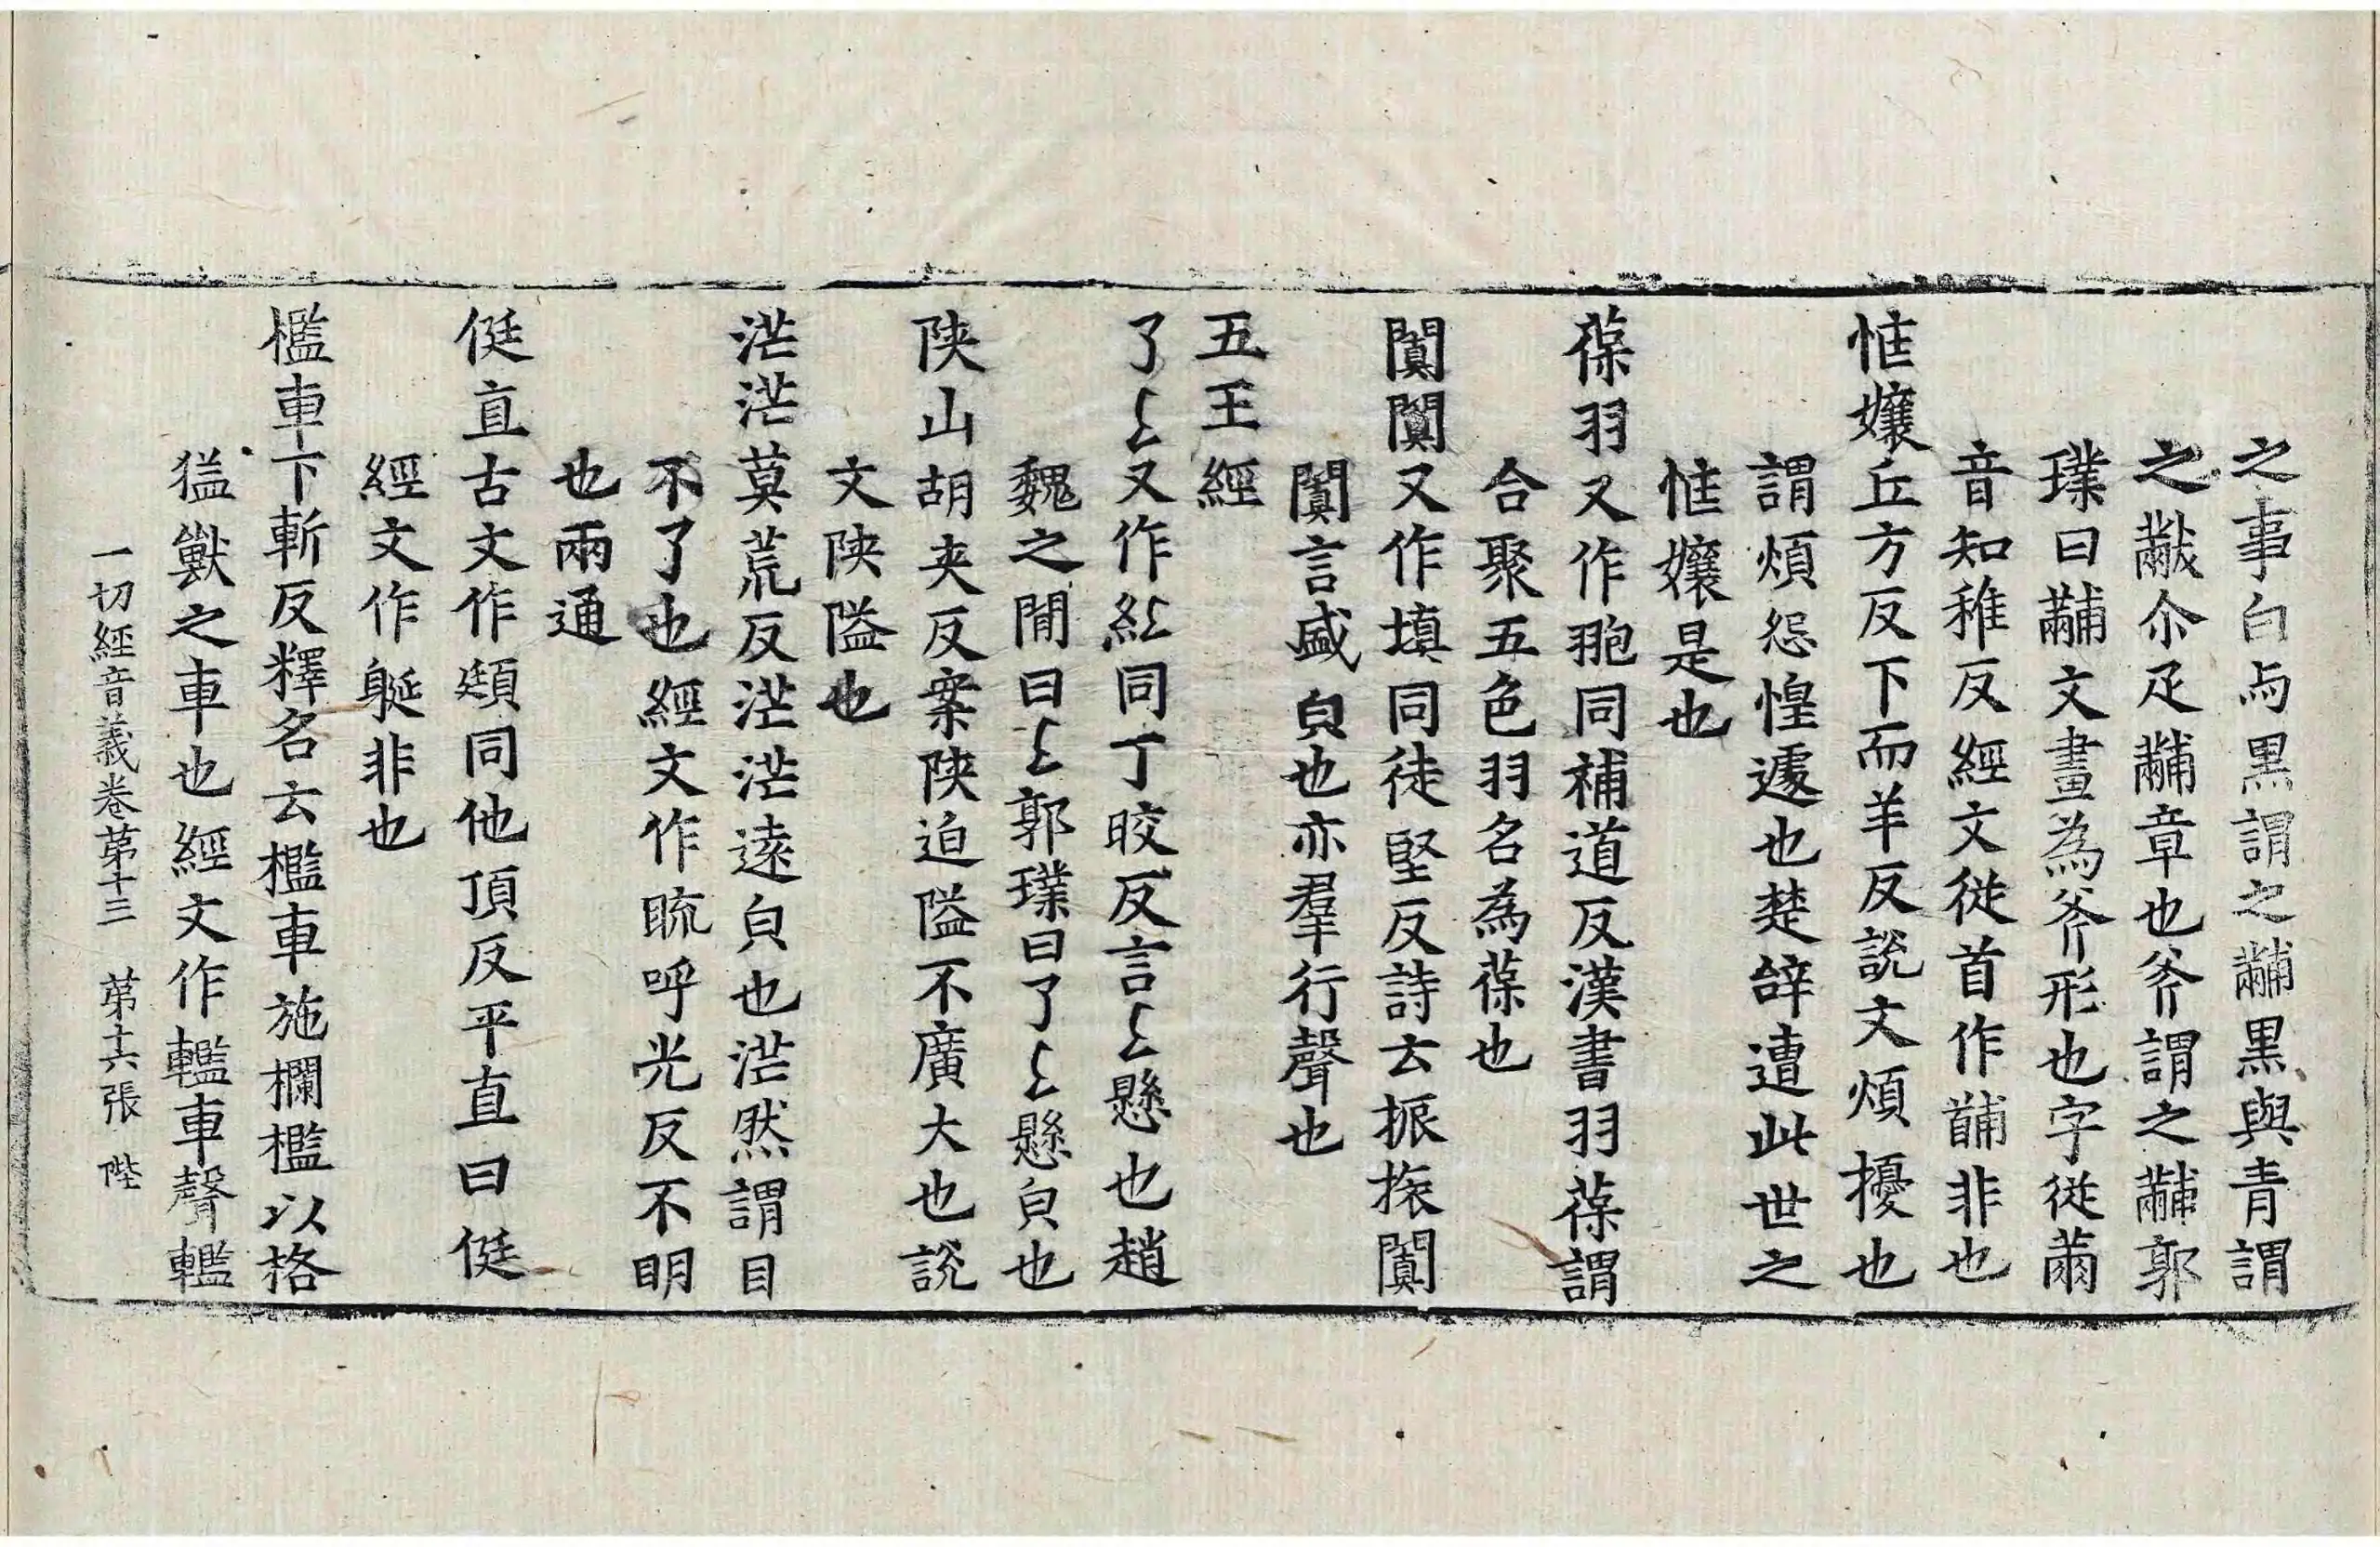 之事白与黒謂之黼黒與青謂
之黻尒疋黼章也斧謂之黼郭
璞曰黼文畫為斧形也字從黹
音知稚反經文從首作䩉非也
恇孃丘方反下而羊反説文煩擾也
謂煩怨惶遽也楚辝遭此世之
恇孃是也
葆羽又作𦒕同補道反漢書羽葆謂
合聚五色羽名為葆也
闐闐又作填同徒堅反詩云振振闐
闐言盛皃也亦羣行聲也
五王經
了𠄏又作𥿆同丁皎反言𠄏懸也趙
魏之閒曰𠄏郭璞曰了𠄏懸皃也
陝山胡夾反案陝迫隘不廣大也説
文陝隘也
茫茫莫荒反茫茫遠皃也茫然謂目
不了也經文作䀮呼光反不明
也兩通
侹直古文作頲同他頂反平直曰侹
經文作艇非也
檻車下斬反釋名云檻車施欄檻以格
猛獸之車也經文作轞車聲轞
一切經音義卷第十三 第十六張 陛